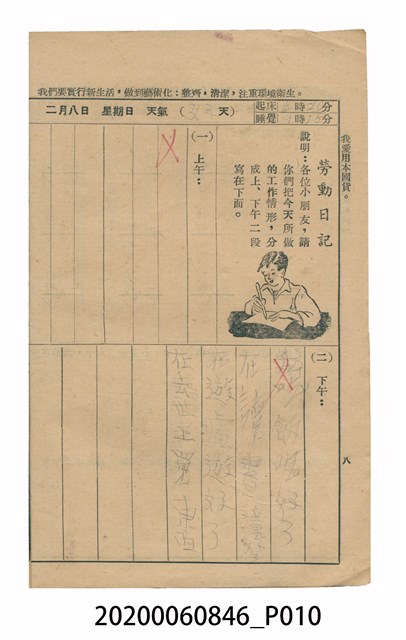 我們要實行新生活，做到藝術化：整齊，清潔，注重環境衛生。
二月八日 星期日 天氣（ 天）
起床 時 分
睡覺 時 分
我愛用本國貨。
勞動日記
說明：各位小朋友，請
你們把今天所做
的工作情形，分
成上、下午二段
寫在下面。
（一）上午：
（二）下午：
飯吃好了
在讀書
在遊 遊好了
在去 東西
八
20200060846_P010